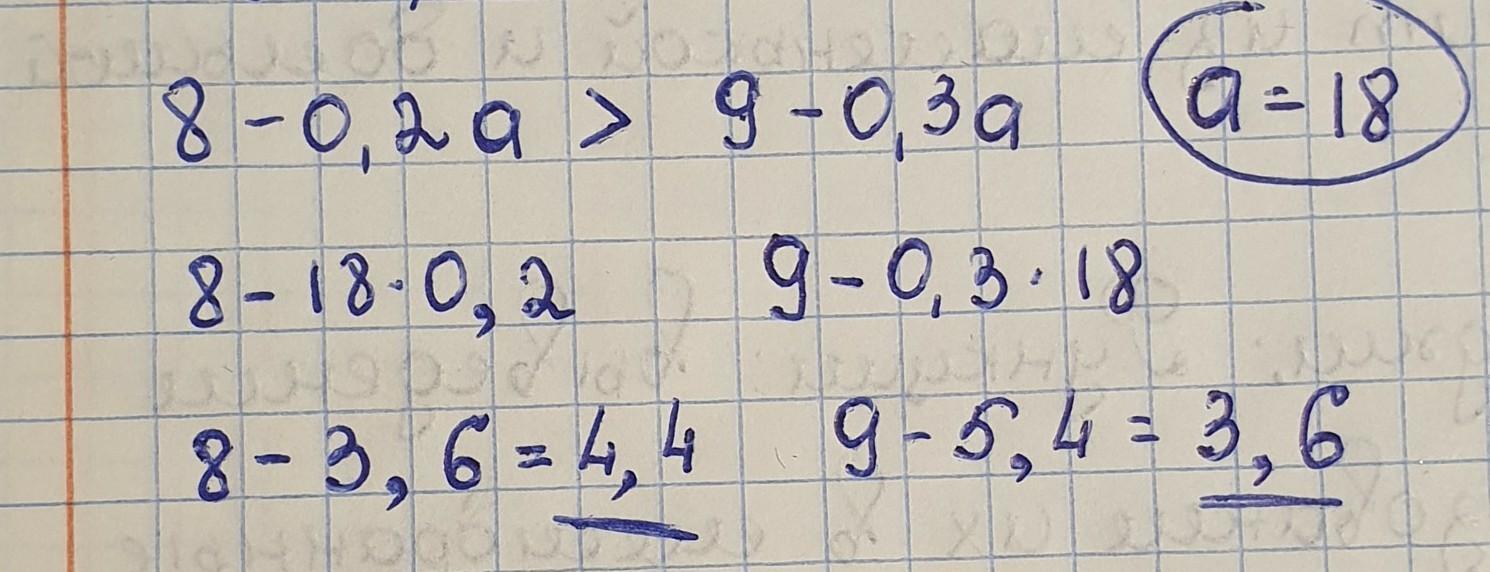 8 - 0,2a > 9 - 0,3a a = 18
8 - 18 · 0,2 9 - 0,3 · 18
8 - 3,6 = 4,4 9 - 5,4 = 3,6